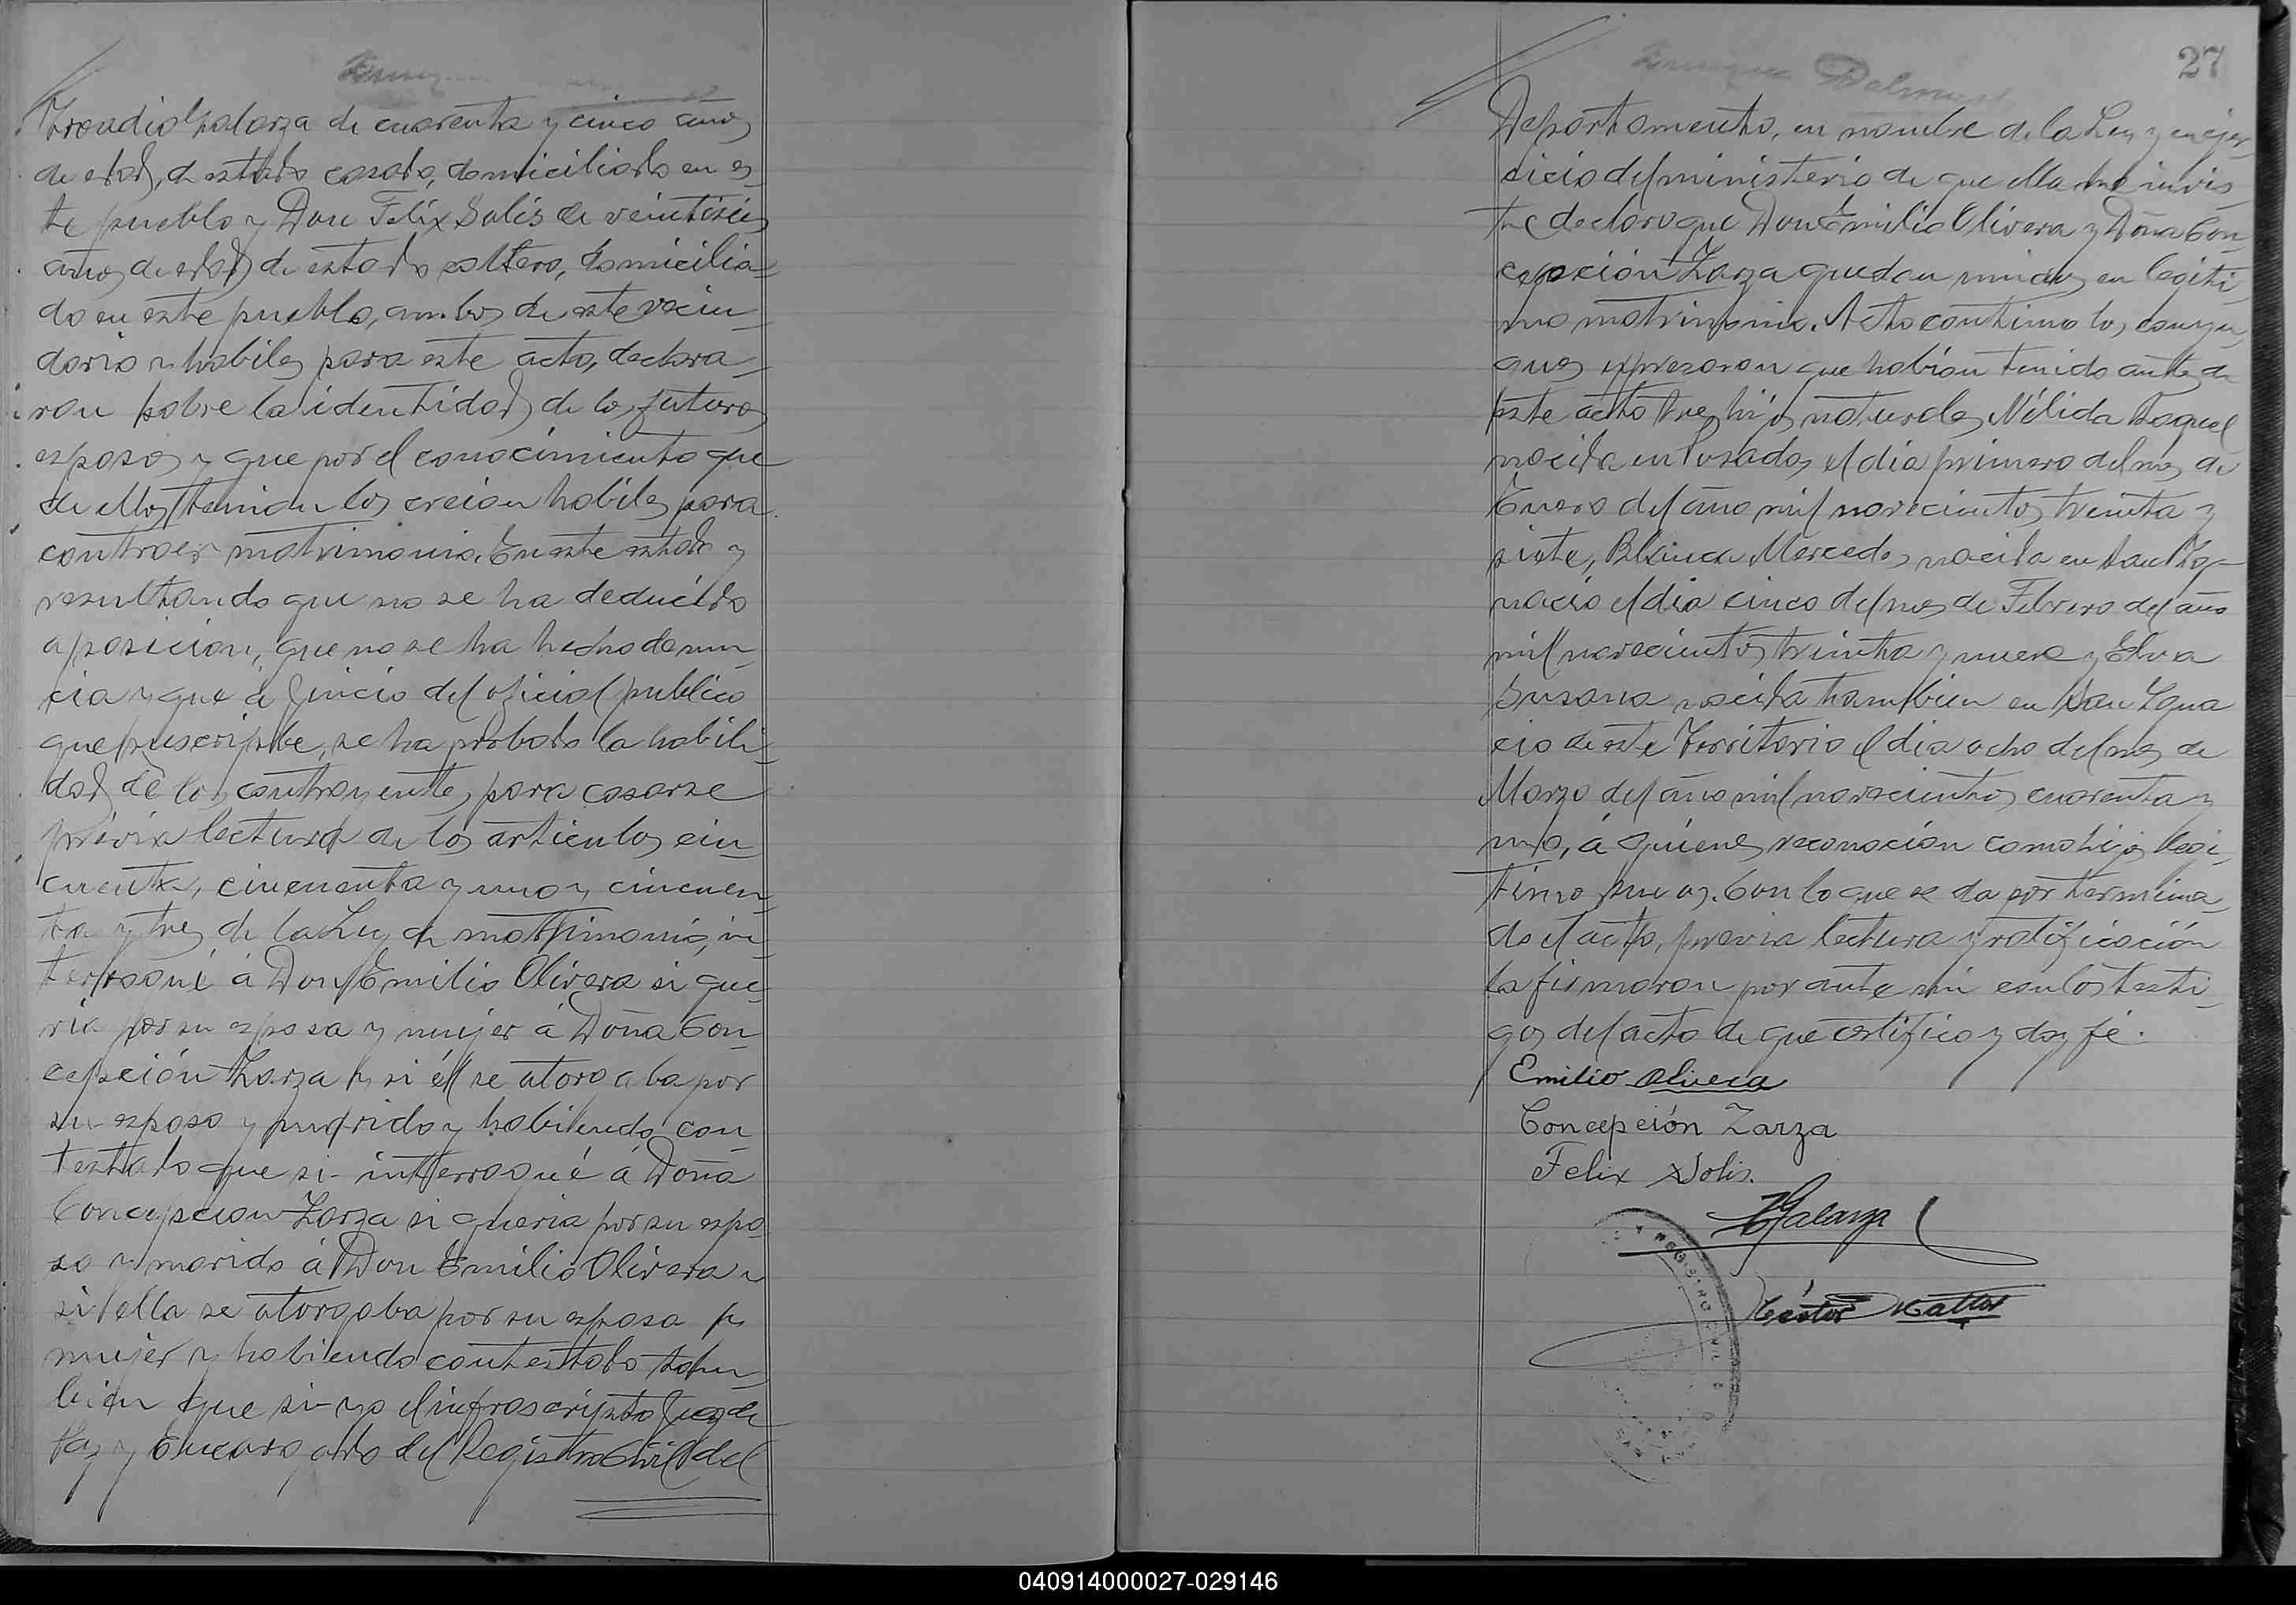 Galarza de cuarenta y cinco años
de edad, de estado casado, domiciliado en es-
te pueblo y Don Felix Solis de veintiseis
años de edad de estado soltero, domicilia-
do en este pueblo, ambos de este vecin-
dario y habiles para este acto, declara-
ron sobre la identidad de los futuros
esposos y que por el conocimiento que
de ellos tenian los creian habiles para
contraer matrimonio. En este estado y
resultando que no se ha deducido
oposicion, que no se ha hecho denun-
cia y que á juicio del oficial publico
que suscripbe, se ha probado la habili-
dad de los contrayentes para casarse
previa lectura de los articulos cin-
cuenta, cincuenta y uno y cincuen-
ta y tres de la Ley de matrimonio, in-
terrogué á Don Emilio Olivera si que-
ria por su esposa y mujer á Doña Con-
cepción Zarza y si él se otorgaba por
su esposo y marido y habiendo con-
testado que si- interrogué á Doña
Concepcion Zarza si queria por su espo-
so y marido á Don Emilio Olivera y
si ella se otorgaba por su esposa y
mujer y habiendo contestado tam-
bien que si- yo el infrascripto Juez de
Paz y Encargado del Registro Civil del
27
Departamento, en nombre de la Ley y en ejer-
sicio del ministerio de que ella me invis-
te declaro que Don Emilio Olivera y Doña Con-
cepción Zarza quedan unidos en legiti-
mo matrimonio. Acto continuo los conyu-
gues expresaron que habian tenido antes de
este acto tres hijos naturales Nélida Raquel
nacida en Posadas el dia primero del mes de
Enero del año mil novecientos treinta y
siete, Blanca Mercedes nacida en San Ig-
nacio el dia cinco del mes de Febrero del año
mil novecientos treinta y nueve y Elva
Susana nacida tambien en San Igna
cio de este Territorio el dia ocho del mes de
Marzo del año mil novecientos cuarenta y
uno, á quienes reconocian como hijos legi-
timos suyos. Con lo que se da por termina-
do el acto, previa lectura y ratificación
la firmaron por ante mi con los testi-
gos del acto de que certifico y doy fé.
Emilio Olivera
Concepción Zarza
Felix Solis.
Galarza
Héctor
REGISTRO CIVIL
040914000027-029146